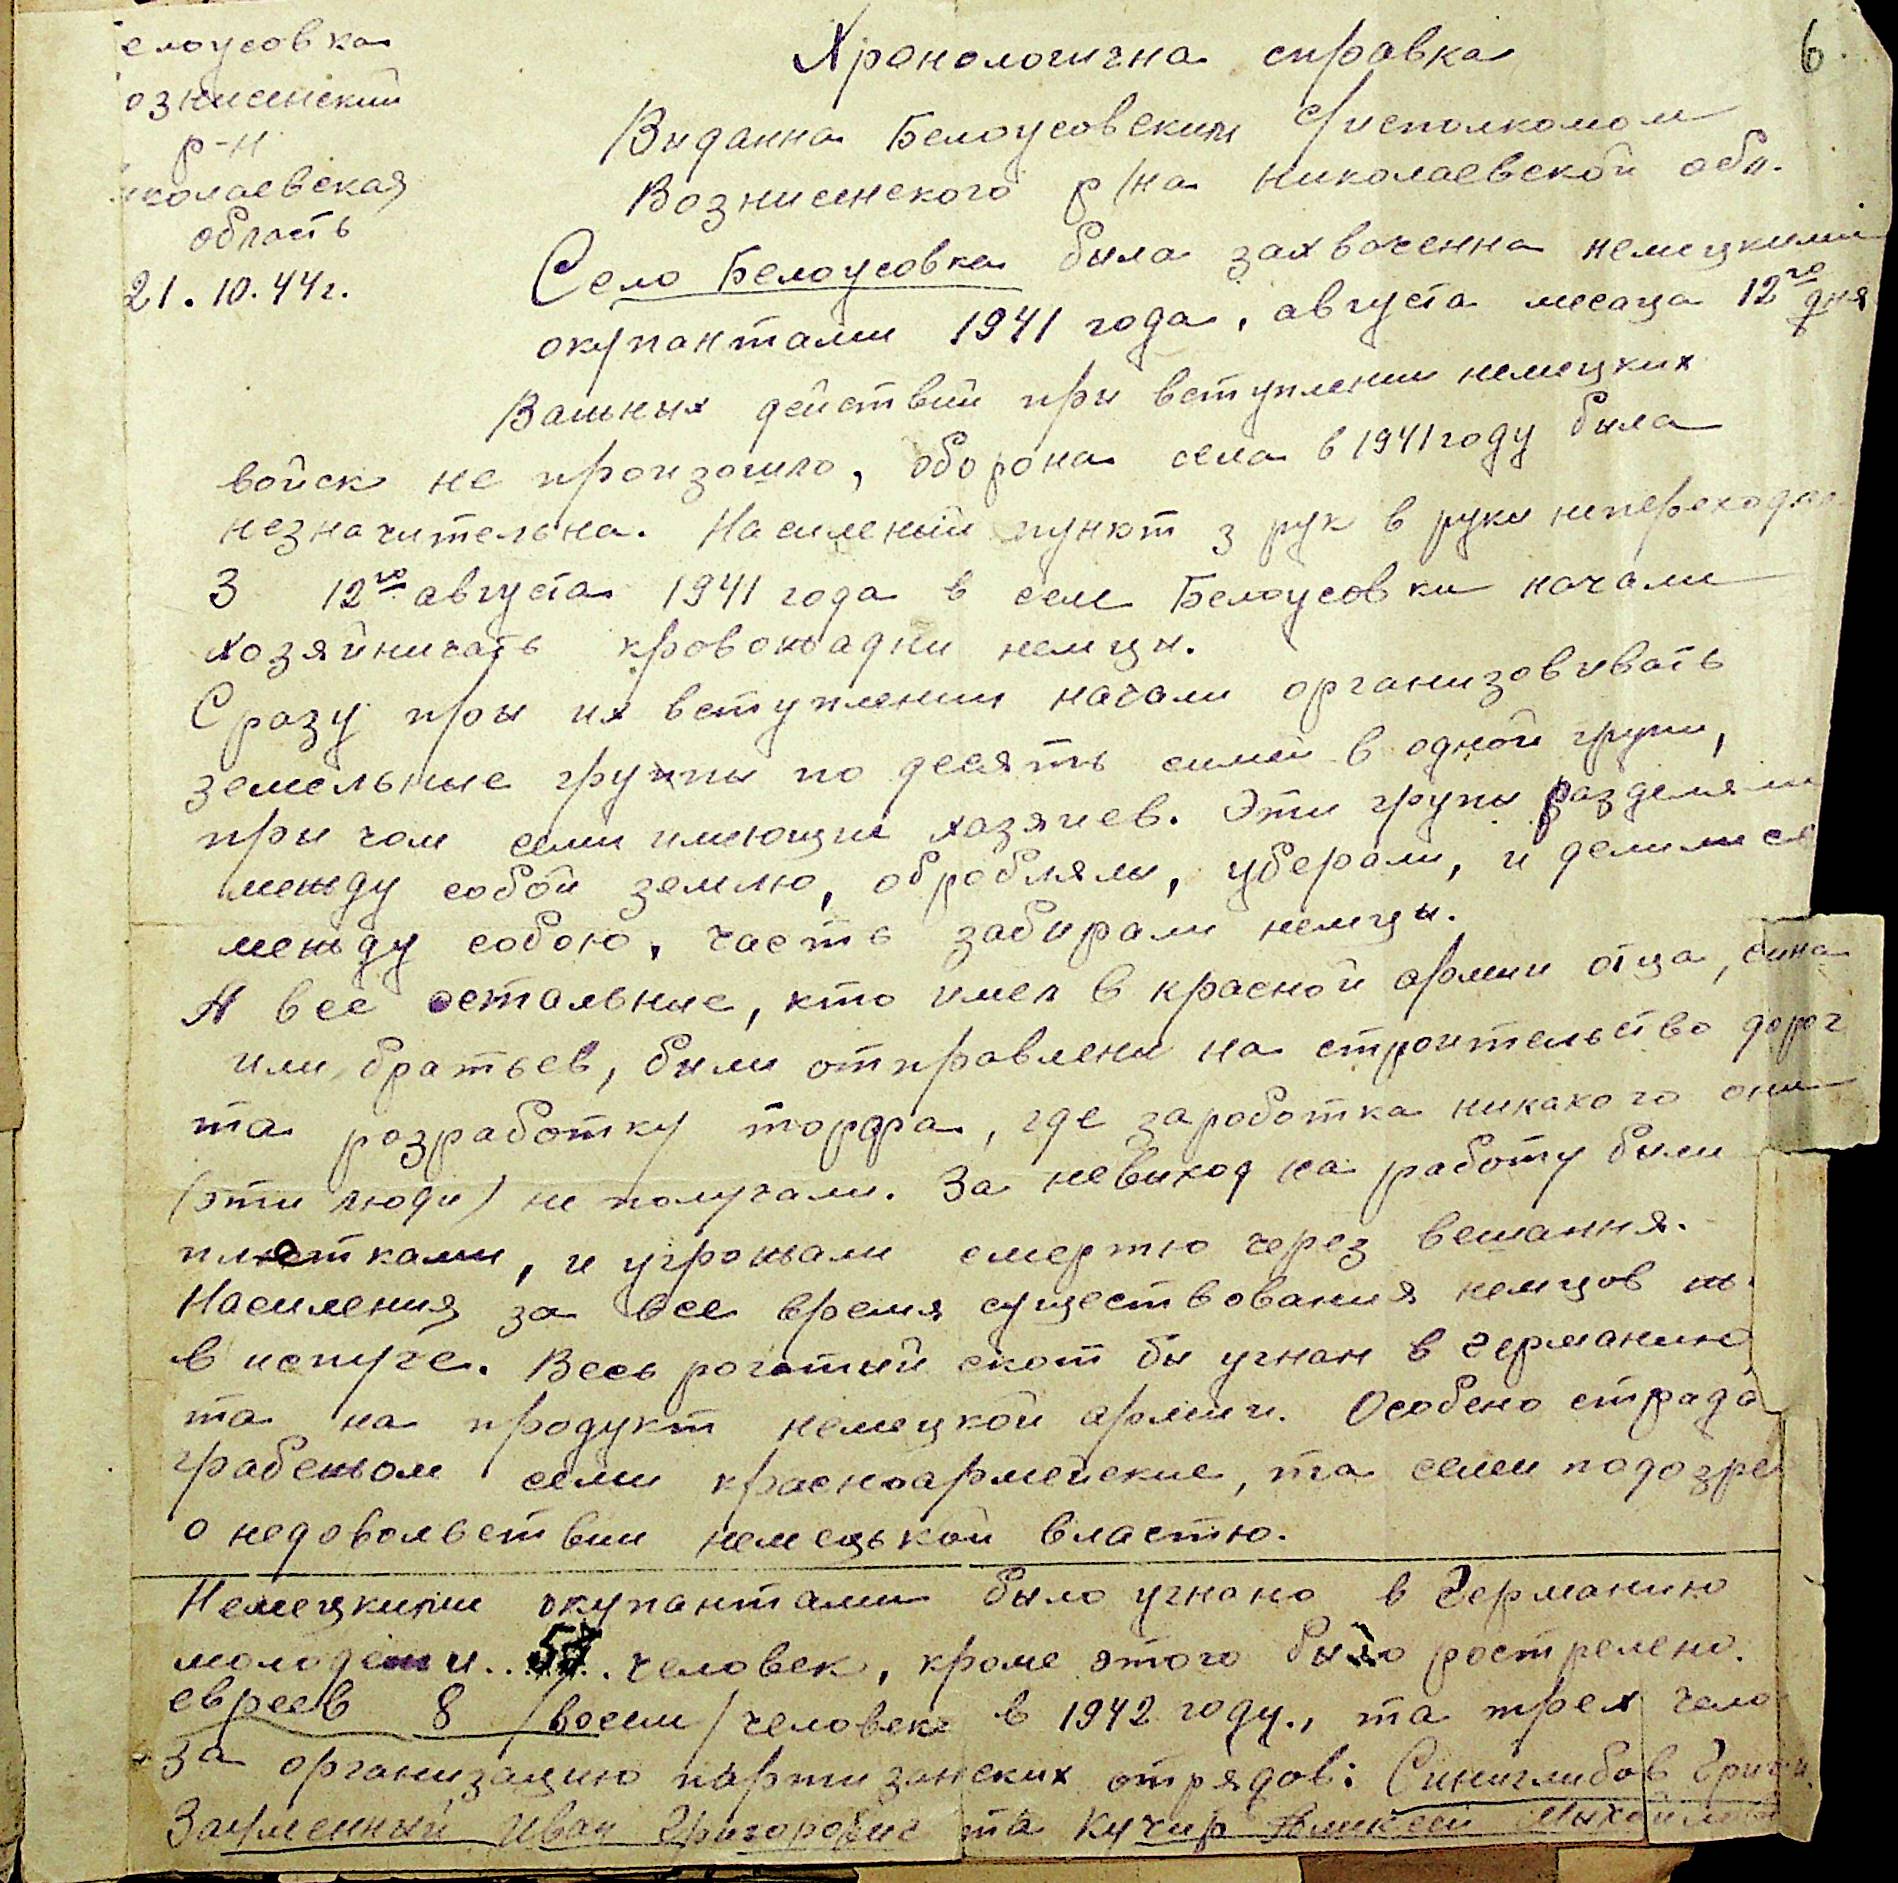 елоусовка
ознисенский
р-н
иколаевская
область
21.10.44г.
6
Хронологична справка
Виданна Белоусовским с/исполкомом
Вознисенского р/на Николаевской обл.
Село Белоусовка била захваченна немецкими
окупантами 1941 года, августа месаца 12го дня
Важных действий при вступлении немецких
войск не произошло, оборона села в 1941 году била
незначительна. Насиленый пункт з рук в руки непереходил
З 12го августа 1941 года в селе Белоусовки начали
хозяйничать кровожадни немци.
Сразу при их вступлении начали организовивать
земельные групы по десять симей в одной групи,
при чом семи имеющие хазяиев. Эти групы разделяли
между собой землю, обробляли, уберали, и делились
между собою, часть забирали немцы.
А все остальные, кто имел в красной армии отца, сина
или братьев, били отправлены на строительство дорог
та розработку торфа, где заработка никакого они
(эти люди) не получали. За невиход на работу били
плетками, и угрожали смертю через вешания.
Насиления за все время существования немцов
в испуге. Весь рогатый скот бы угнан в Германию
та на продукт немецкой армии. Особено страда
грабежом семи красноармейские, та семи подозре
о недовольствии немецькой властю.
Немецкими окупантами было угнано в Германию
молодежи .. 57 .. человек, кроме этого было рострелено
евреев 8 /восем/ человек в 1942 году., та трех чело
за организацию партизанских отрядов: Синиглибов Григи
Заумленный Иван Григорович та Кучир Михайлов